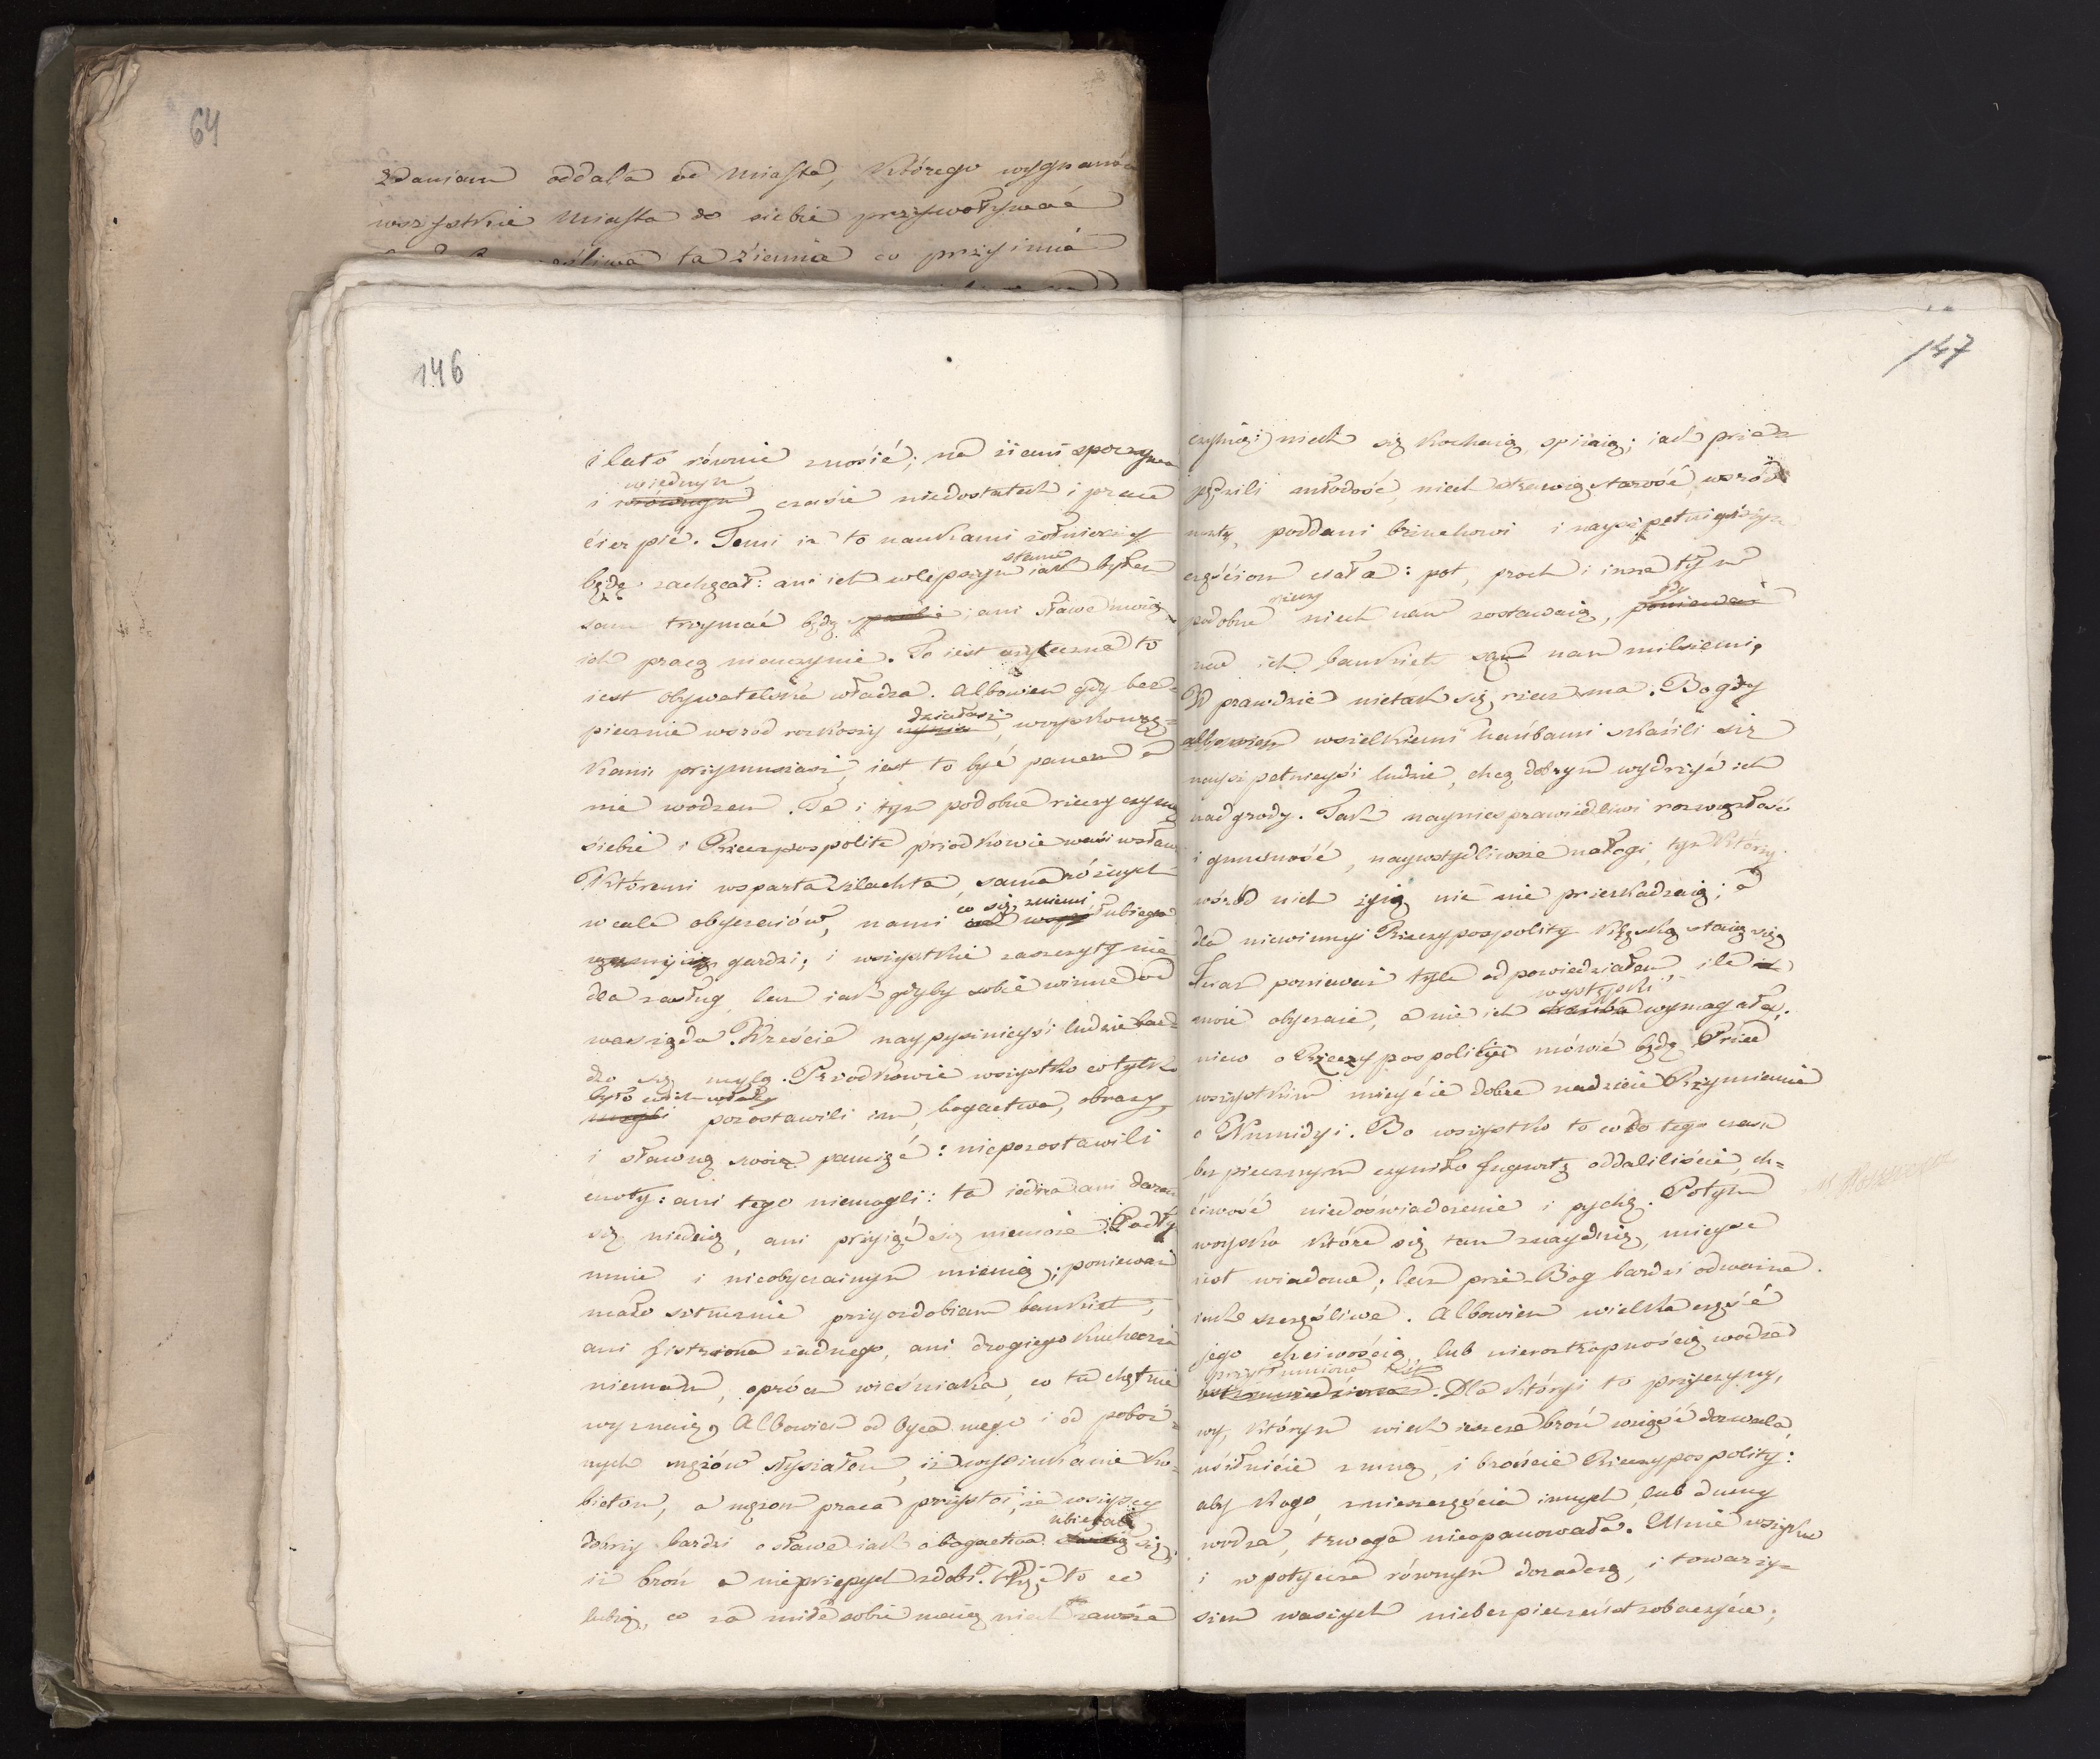 64
zdaniem oddala od miasta, którego wygnańca
wszystkie miasta do siebie przywoływać
ta ziemia co przyimie
146
i lato równie znosić; na ziemi spoczywa
wiednym
i czasie niedostatek i prace
ćierpić. Temi ia to naukami żołnierzy
stanie
będę zachęcał: ani ich wlepszym iak byłem
sam trzymać będę ; ani sławe moię
ich pracą nieuczynie. To iest użyteczna to
iest obywatelska władza. Albowiem gdy bez=
działasz
piecznie wsrod rozkoszy , woysko mę=
kami przymuszasz, iest to być panem a
nie wodzem. Te i tym podobne rzeczy czyniąc
siebie i Rzeczpospolite przodkowie wasi wsław
Któremi wsparta szlachta, sama różnych
co się z niemi
wcale obyczaiów, nami ubiega
gardzi; i wszystkie zaszczyty nie
dla zasług, lecz iak gdyby sobie winne od
was żąda. Wreście naypyszniejsi ludzie bar=
dzo się mylą. Przodkowie wszystko co tylko
było w ich władzy
pozostawili im, bogactwa, obrazy,
i sławną swoię pamięć: niepozostawili
cnoty: ani tego niemogli: ta iedna ani darem
się niedaie, ani przyiąć się niemoże. Podły
mnie i nieobyczainym mienią; ponieważ
mało sztucznie przyozdobiam bankiet,
ani histriona żadnego, ani drogiego kucharza
niemam, oprócz wieśniaka, co to chętnie
wyznaię, Albowiem od Oyca mego i od poboż=
nych mężów słyszałem, iż wysziukanie ko=
bietom, a mężom praca przystoi, że wszyscy
ubiegać
dobrzy bardzi o sławe iak o bogactwa się;
iż broń a nieprzepych zdobi. to co
lubią, co za miłe sobie maią niech zawsze
147
czynią; niech się kochaią, spiiaią; iak przepę
pędzili młodość, niech strawią starość wsród
uczty, poddani brzuchowi i nayszpetnieyszym
częściom ciała: pot, proch i inne tym
rzeczy gdy
podobne niech nam zostawaią,
nad ich bankiet są nam milszemi,
W prawdzie nietak się rzecz ma. Bo gdy
albowiem wszelkiemi hańbami skaźili się
nayszpetnieysi ludzie, chcą dobrym wydrzyć ich
nadgrody. Tak nayniesprawiedliwi rozwiązłość
i gnusność, naywstydliwsze nałogi, tym którzy
wśród nich żyią nic nie przeszkadzaią; a
dla niewinnyi Rzeczypospolity klęską staią się
Teraz ponieważ tyle odpowiedziałem, ile
występki
moie obyczaie, a nie ich wymagały:
nieco o Rzeczypospolityi mówić będę. Przed
wszystkim mieyćie dobre nadzieie Rzymianie
o Numidyi. Bo wszystko to co do tego czasu
bezpiecznym czyniło Jugurtę oddaliliście, ch=
ćiwość niedoświadczenie i pychę. Potym
woysko które się tam znayduie, mieysc
iest wiadome; lecz prze-Bog bardzi odważne.
iak szczęśliwe. Albowiem wielka część
jego chciwością lub nieroztropnością wodzów
przytłumiona iest
. Dla któryi to przyczyny,
wy, którym wiek ieszcze broń wziąść dozwala,
usiłuićie zmną, i brońcie Rzeczypospolity:
aby kogo, znieszczęścia innych, lub dumy
wodza, trwoga nieopanowała. Mnie wszędzie
i w potyczce równym doradcą, i towarzy=
szem waszych niebezpieczeństw zobaczycie;